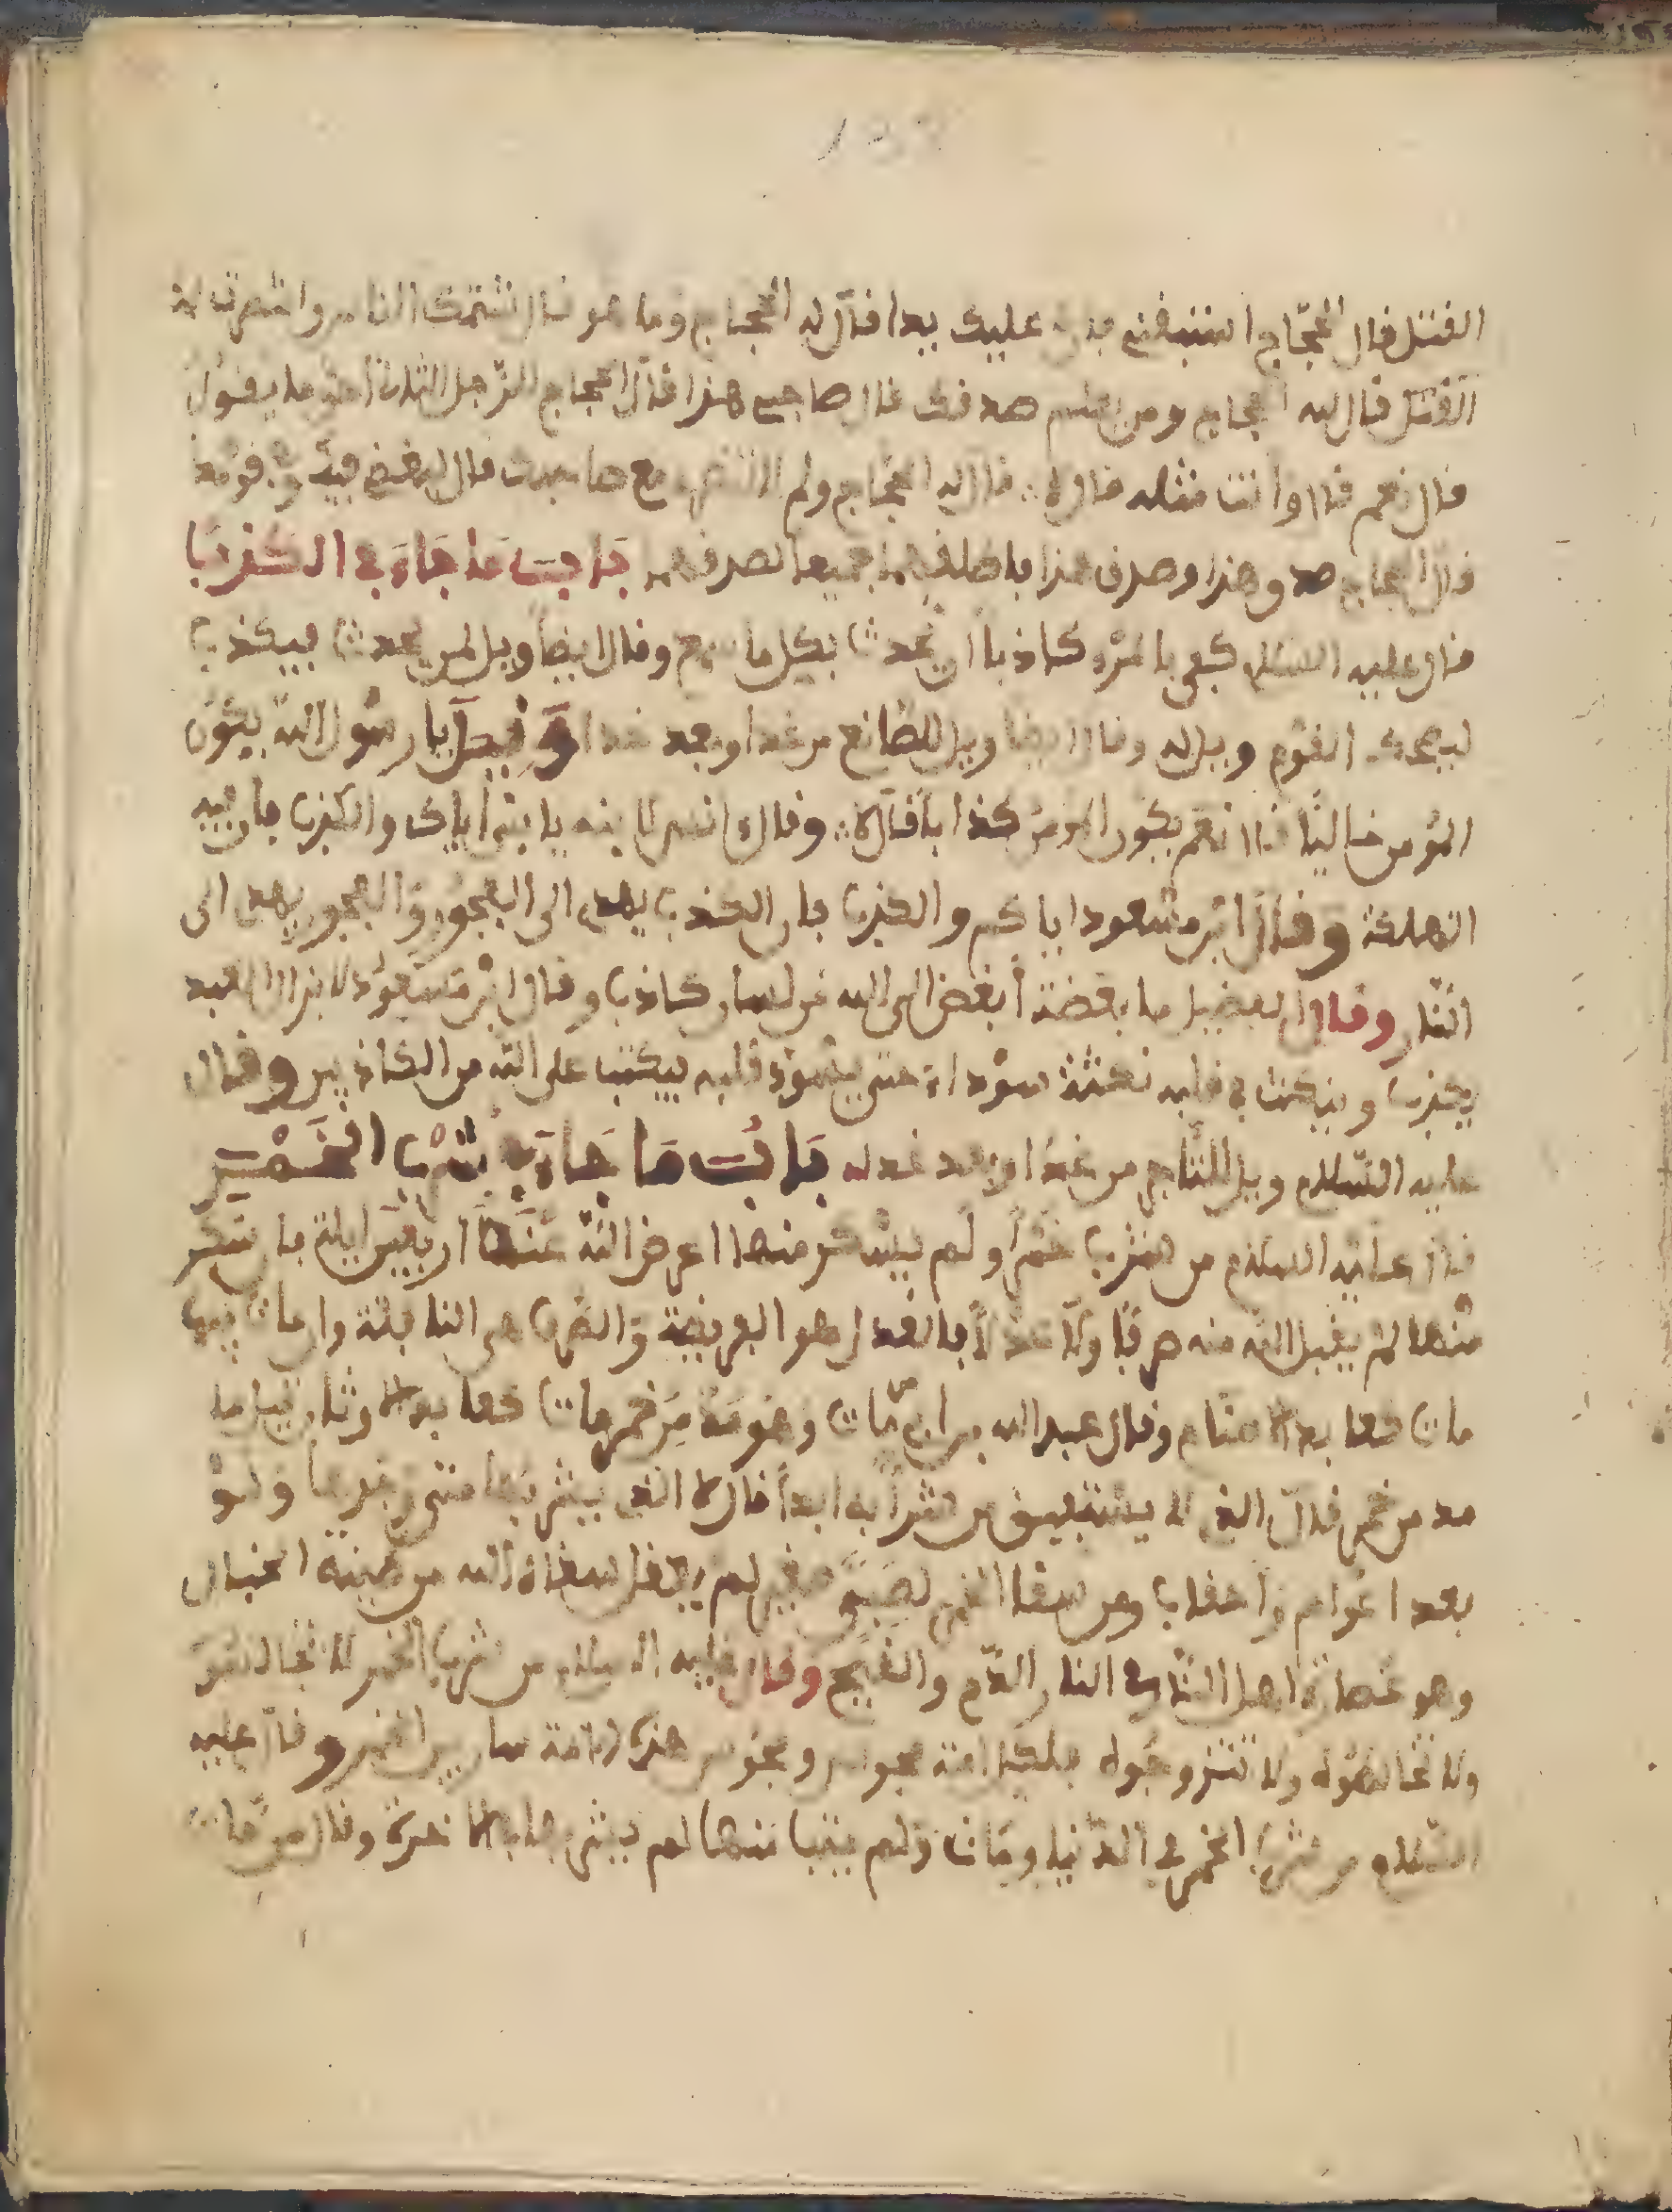 القتل فقال الحجاج استبقني فان عليك يدا فقال له الحجاج وما هو قال شتمك الناس وانتصرت لك
القتل قال له الحجاج ومن يعلم صدقك قال صاحبي هذا فقال الحجاج للرجل الثاني احق ما يقول
قال نعم قال وانت مثله قال لا قال له الحجاج ولم لا تنتصر مع صاحبك قال لبغضي فيك وفي قومك
قال الحجاج صدق هذا وصدق هذا فاطلقهما جميعا لصدقهم باب ما جاء في الكذب
قال عليه السلام كفى بالمرء كاذبا ان يحدث بكل ما سمع وقال ايضا ويل لمن يحدث فيكذب
ليضحك القوم ويل له وقال ايضا ويل للصانع من غدا وبعد غدا وقيل يا رسول الله يكون
المؤمن خاليا قال نعم يكون المؤمن كذابا قال لا وقال لقمان لابنه يا بني اياك والكذب فان فيه
التهلكة وقال ابن مسعود اياكم والكذب فان الكذب يهدي الى الفجور والفجور يهدي الى
النار وقال الفضيل ما بضعة أبغض الى الله من لسان كاذب وقال ابن مسعود لا يزال العبد
يكذب وينكت في قلبه نكتة سوداء حتى يسود قلبه فيكتب عند الله من الكاذبين وقال
عليه السلام ويل للتاجر من غدا وبعد غد باب ما جاء في شرب الخمر
قال عليه السلام من شرب خمرا ولم يسكر منها اعرض الله عنه اربعين ليلة فان سكر
منها لم يقبل الله منه صرفا ولا عدلا فالعدل هو الفريضة والصرف هي النافلة وان مات فيها
مات كعابد الاصنام وقال عبد الله بن ابي من مات وهو مدمن خمر مات كعابد الاوثان قيل ما
مدمن خمر قال الذي لا يستفيق من شرابه ابدا قال لا الذي يشربها متى وجدها ولو
بعد اعوام وأحقاب ومن سقا الخمر لصبي صغير لم يعقل سقاه الله من طينة الخبال
وهو عصارة اهل النار في النار الدم والقيح وقال عليه السلام من شرب الخمر لا تجالسوه
ولا تخالطوه ولا تزوجوه فلكل امة مجوس ومجوس هذه الامة شاربين الخمر وقال عليه
السلام من شرب الخمر في الدنيا ومات ولم يتب منها لم يشربها في الاخرة وقال من مات